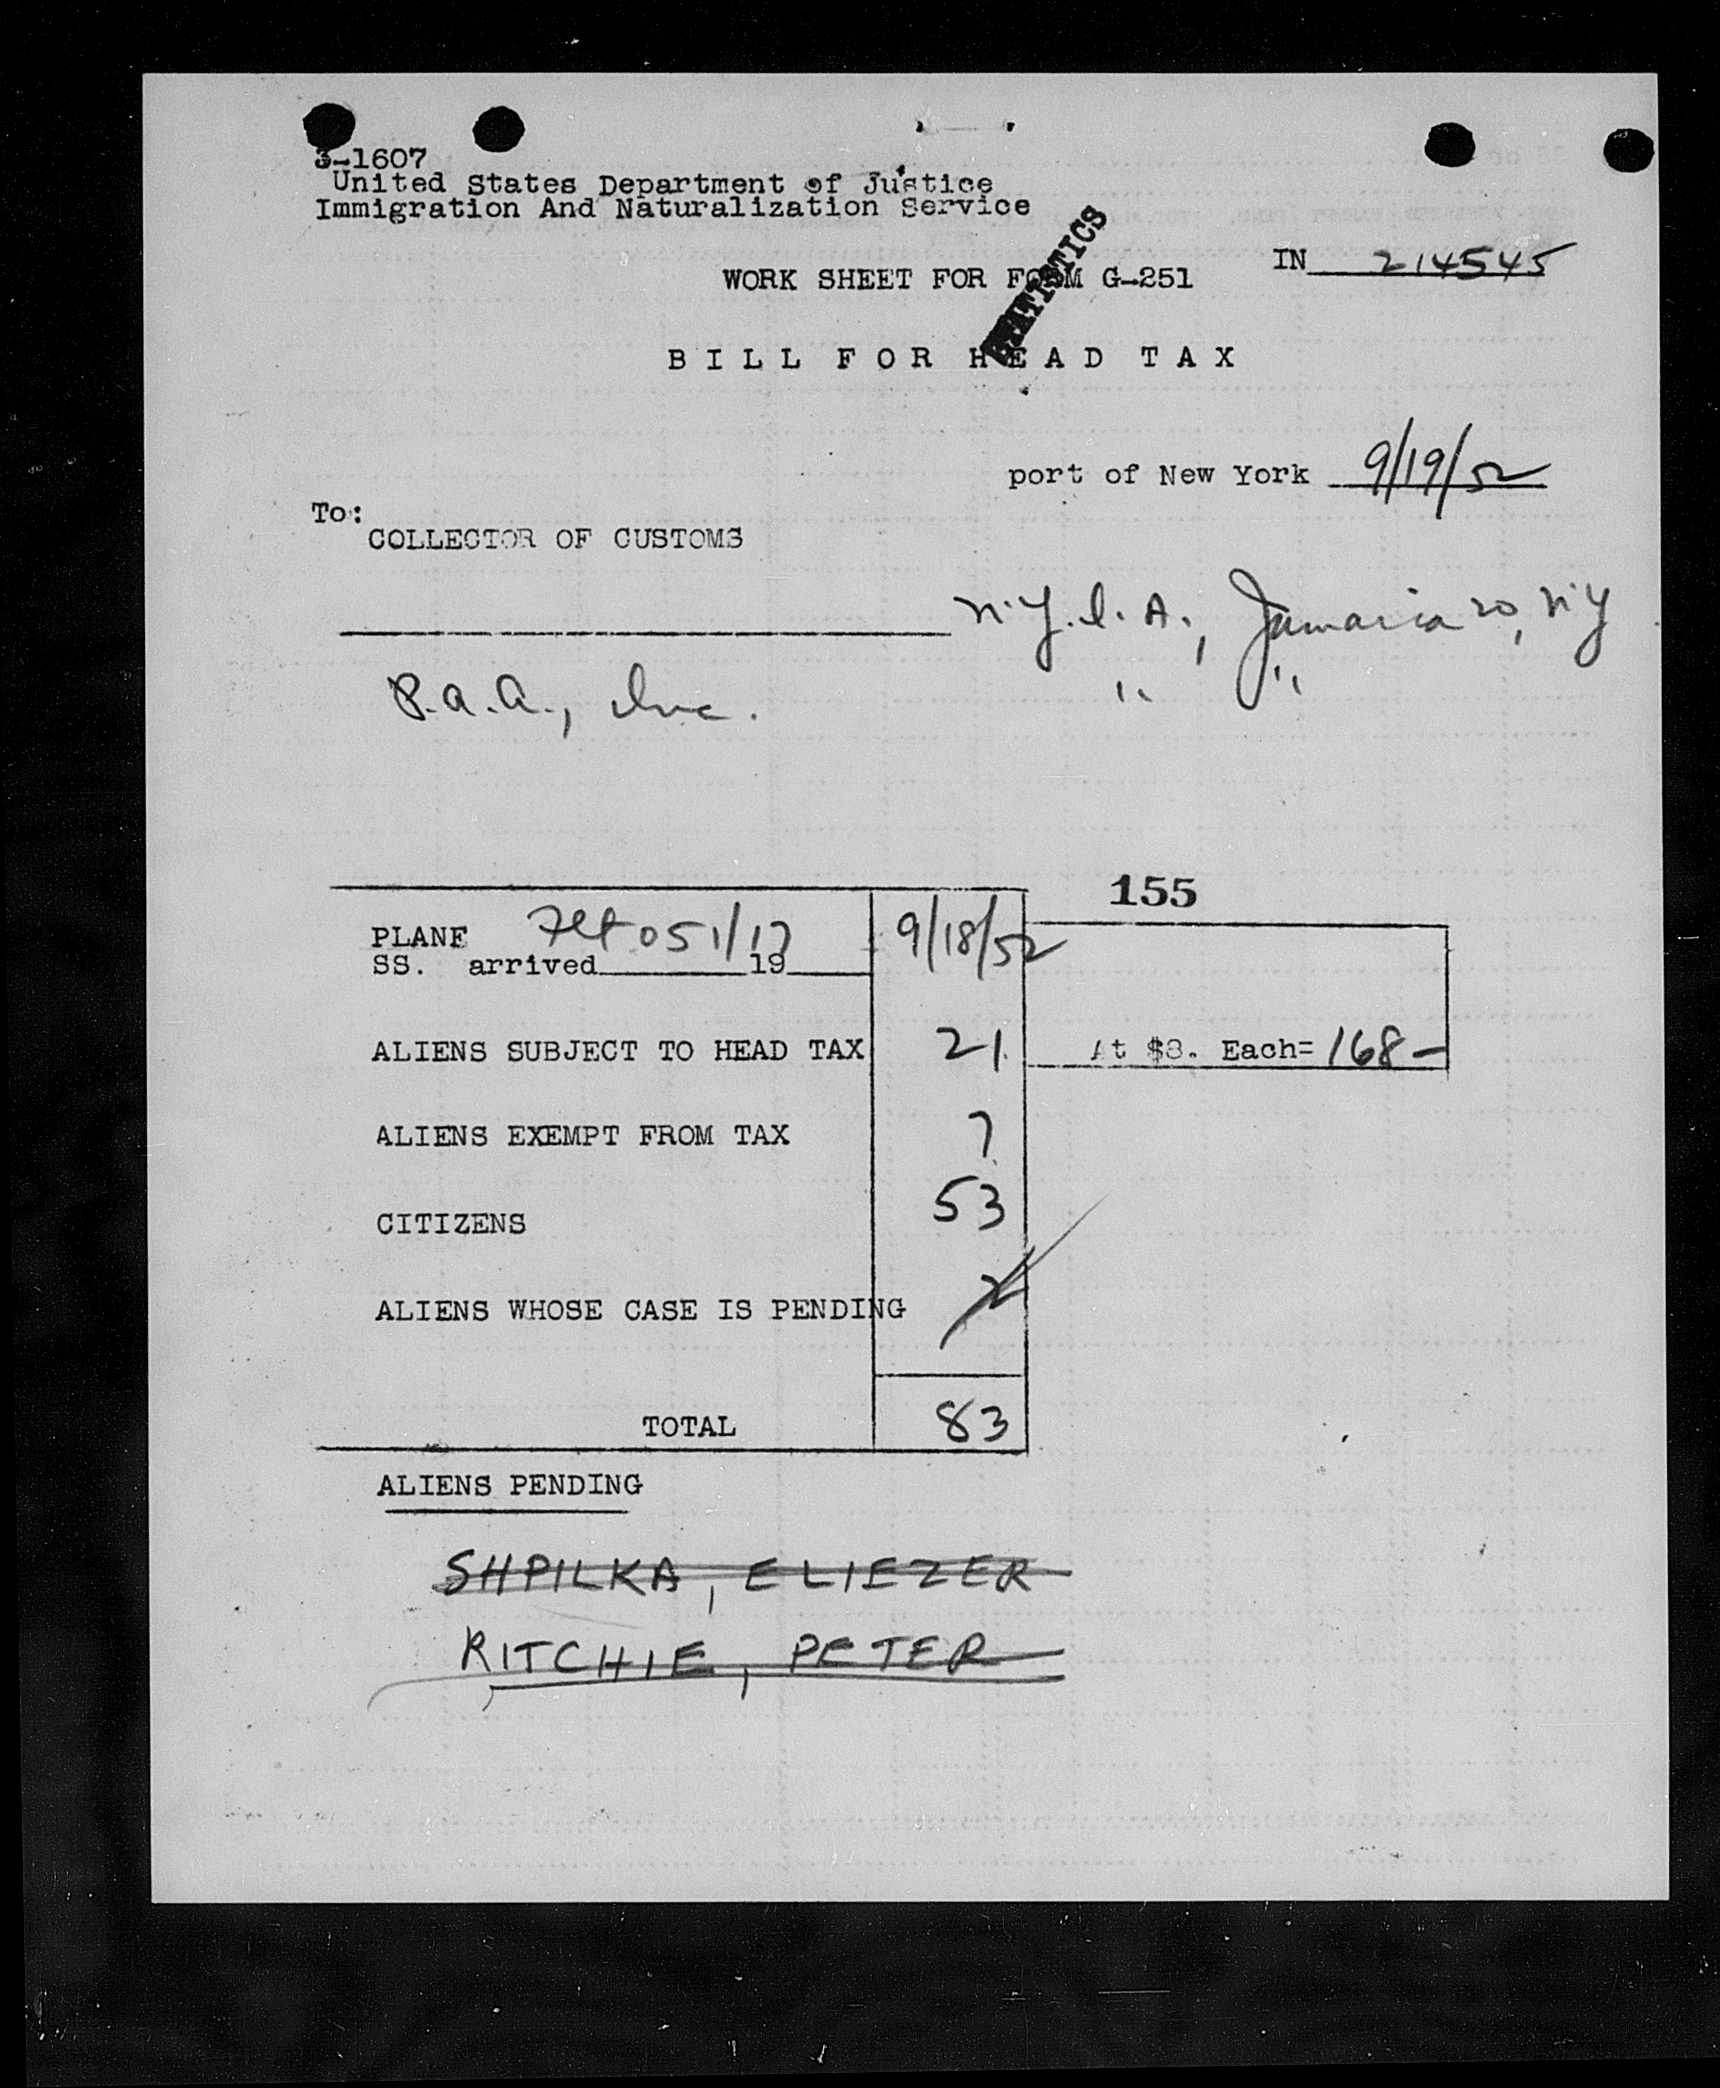 3-1607
United States Department of Justice
Immigration And Naturalization Service
STATISTICS
IN 214545
WORK SHEET FOR FORM G-251
BILL FOR HEAD TAX
port of New York 9/19/52
To:
COLLECTOR OF CUSTOMS
N.Y.I.A., Jamaica 20, N.Y
P.A.A., Inc. " "
155
PLANE Flt 051/17 9/18/52
SS. arrived 19
ALIENS SUBJECT TO HEAD TAX 21 At $8. Each= 168-
ALIENS EXEMPT FROM TAX 7
CITIZENS 53
ALIENS WHOSE CASE IS PENDING 2
TOTAL 83
ALIENS PENDING
SHPILKA, ELIEZER
RITCHIE, PETER